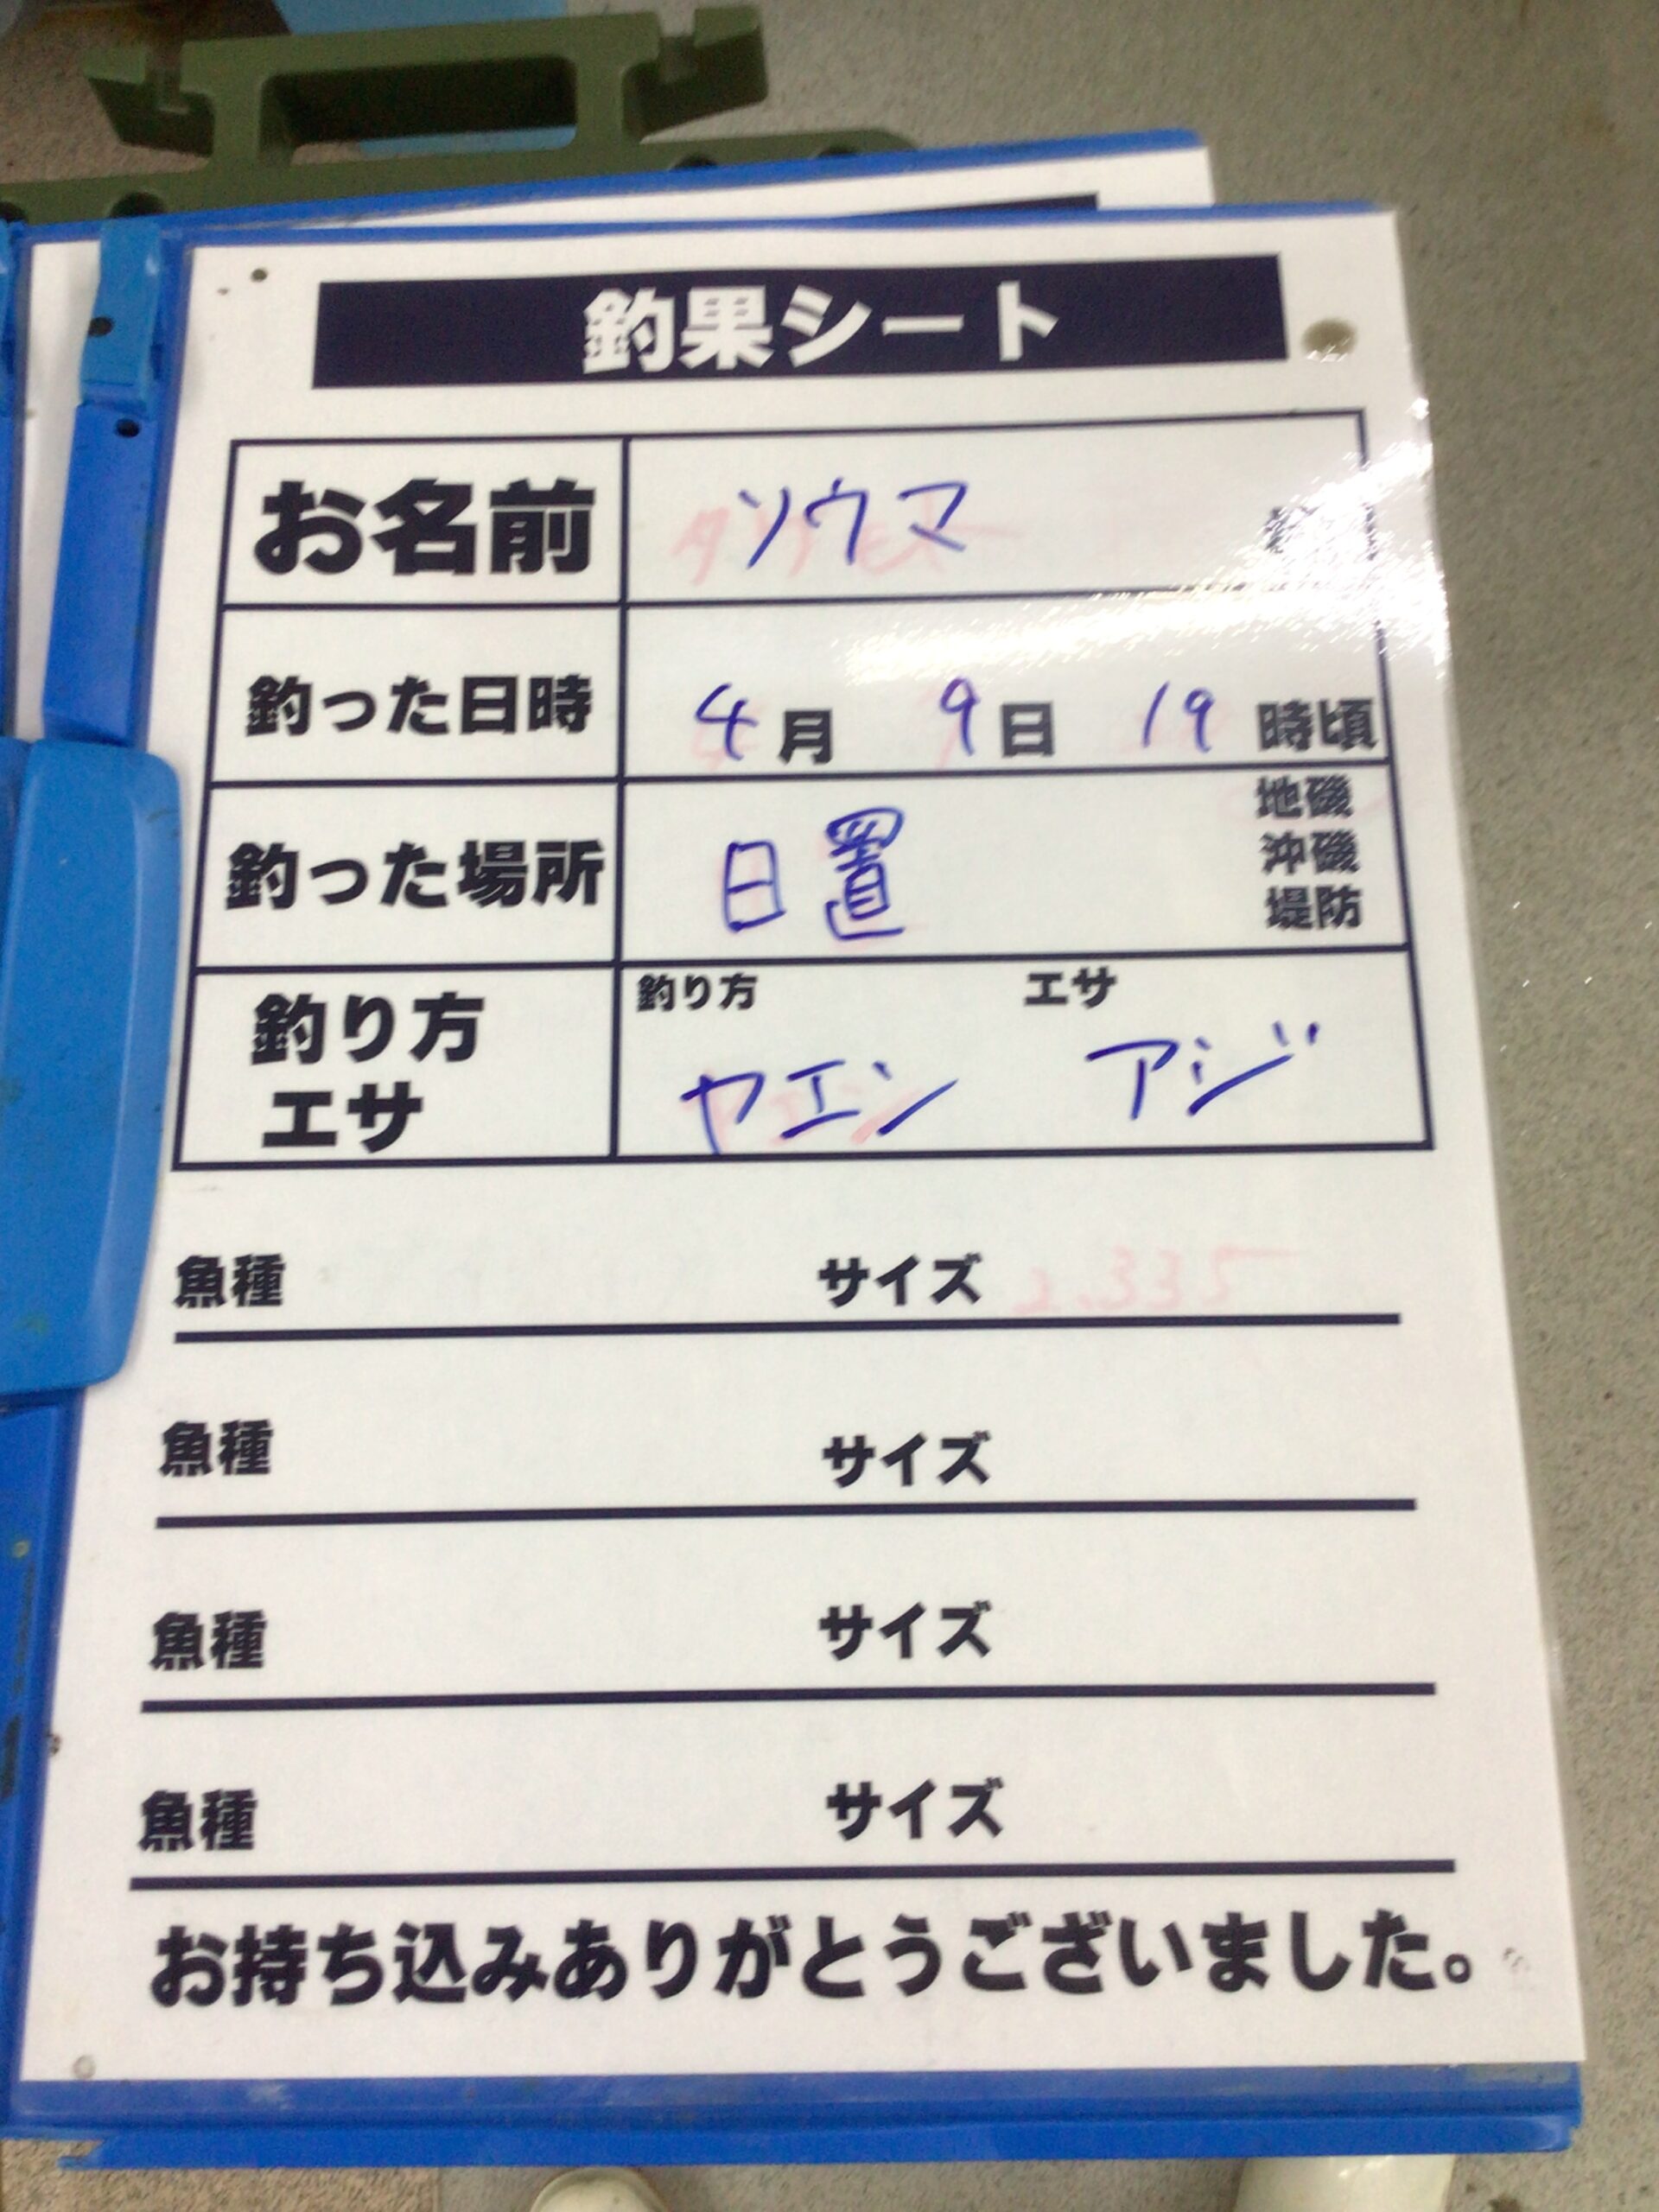 釣果シート
お名前 ソウマ 様
釣った日時 4月 9日 19時頃
釣った場所 日置 地磯 沖磯 堤防
釣り方 エサ 釣り方 ヤエン エサ アジ
魚種 サイズ 2.335
魚種 サイズ
魚種 サイズ
魚種 サイズ
お持ち込みありがとうございました。